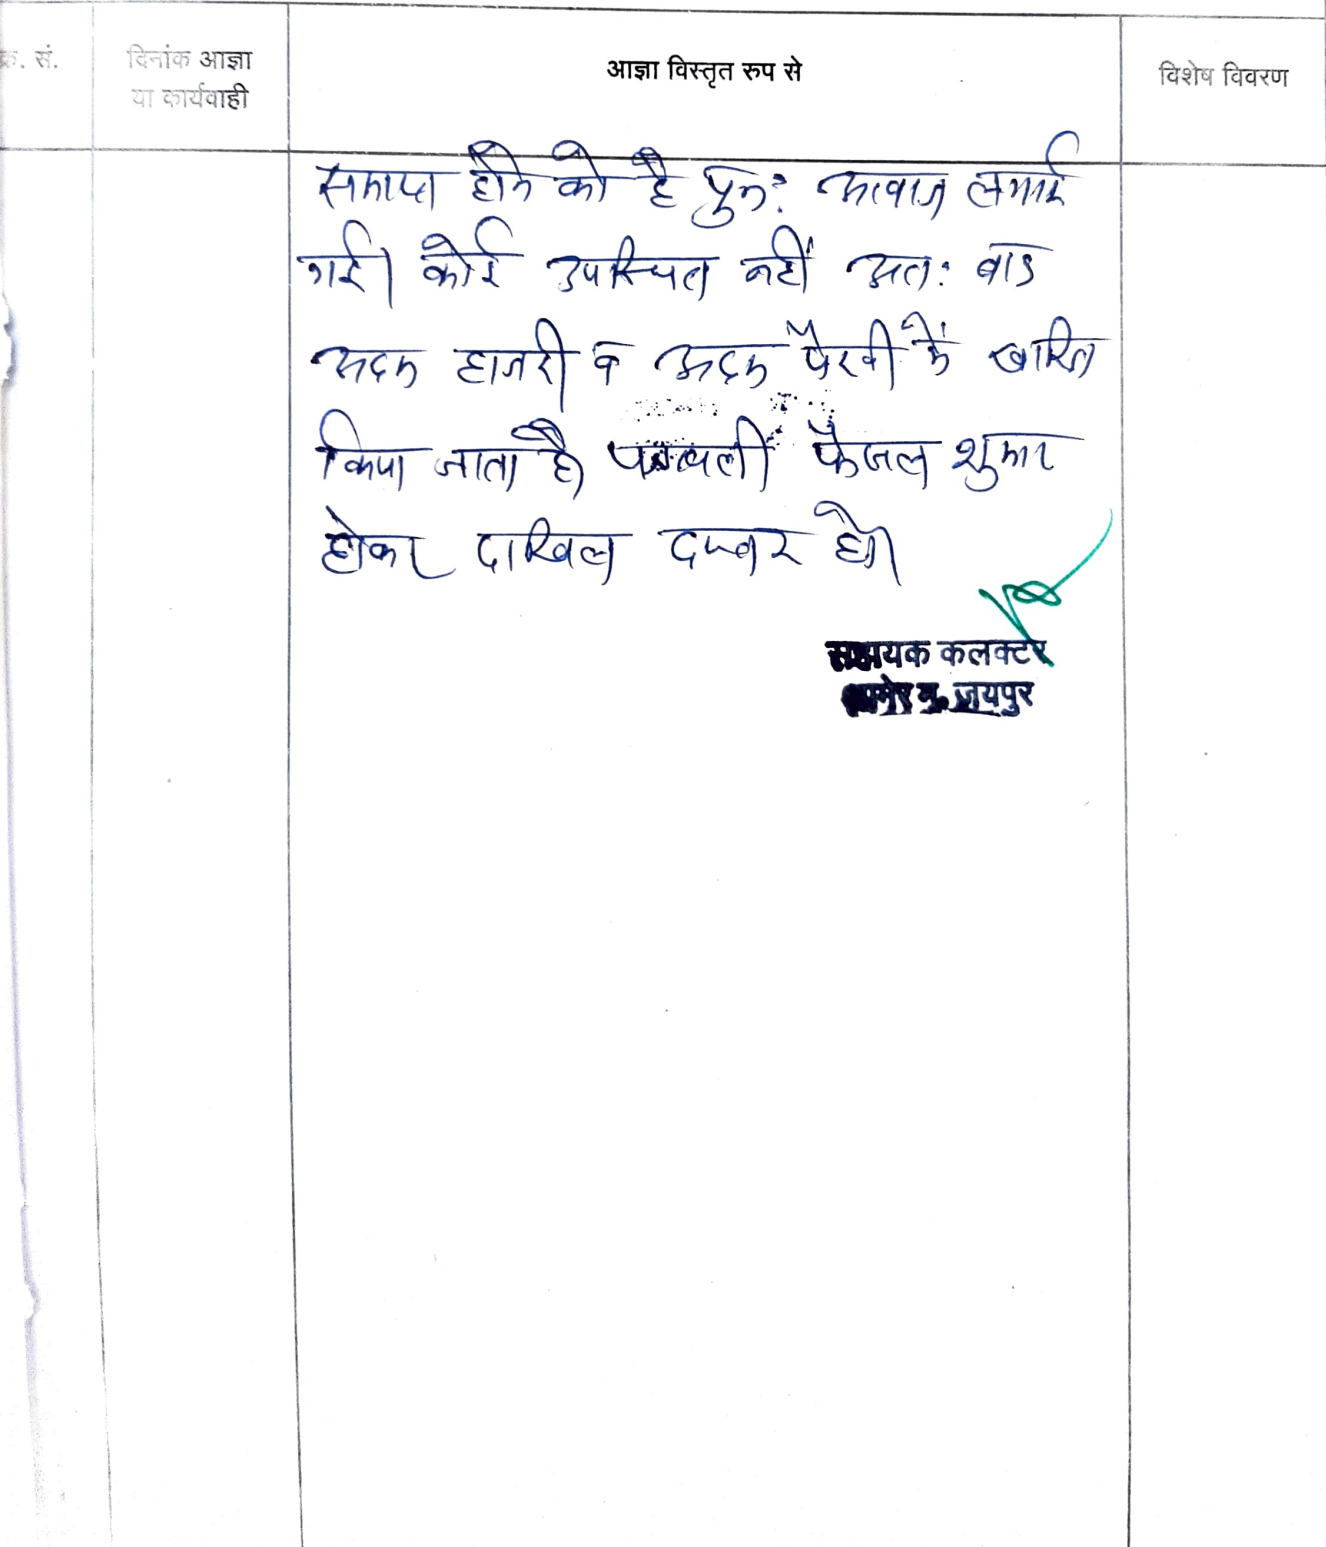 क्र. सं.
दिनांक आज्ञा
या कार्यवाही
आज्ञा विस्तृत रुप से
विशेष विवरण
समाप्त होने को है पुनः आवाज लगाई
गई। कोई उपस्थित नहीं अतः वाद
अदम हाजरी व अदम पैरवी में खारिज
किया जाता है। पत्रावली फैजल शुमार
होकर दाखिल दफ्तर हो।
सहायक कलक्टर
आमेर मु. जयपुर